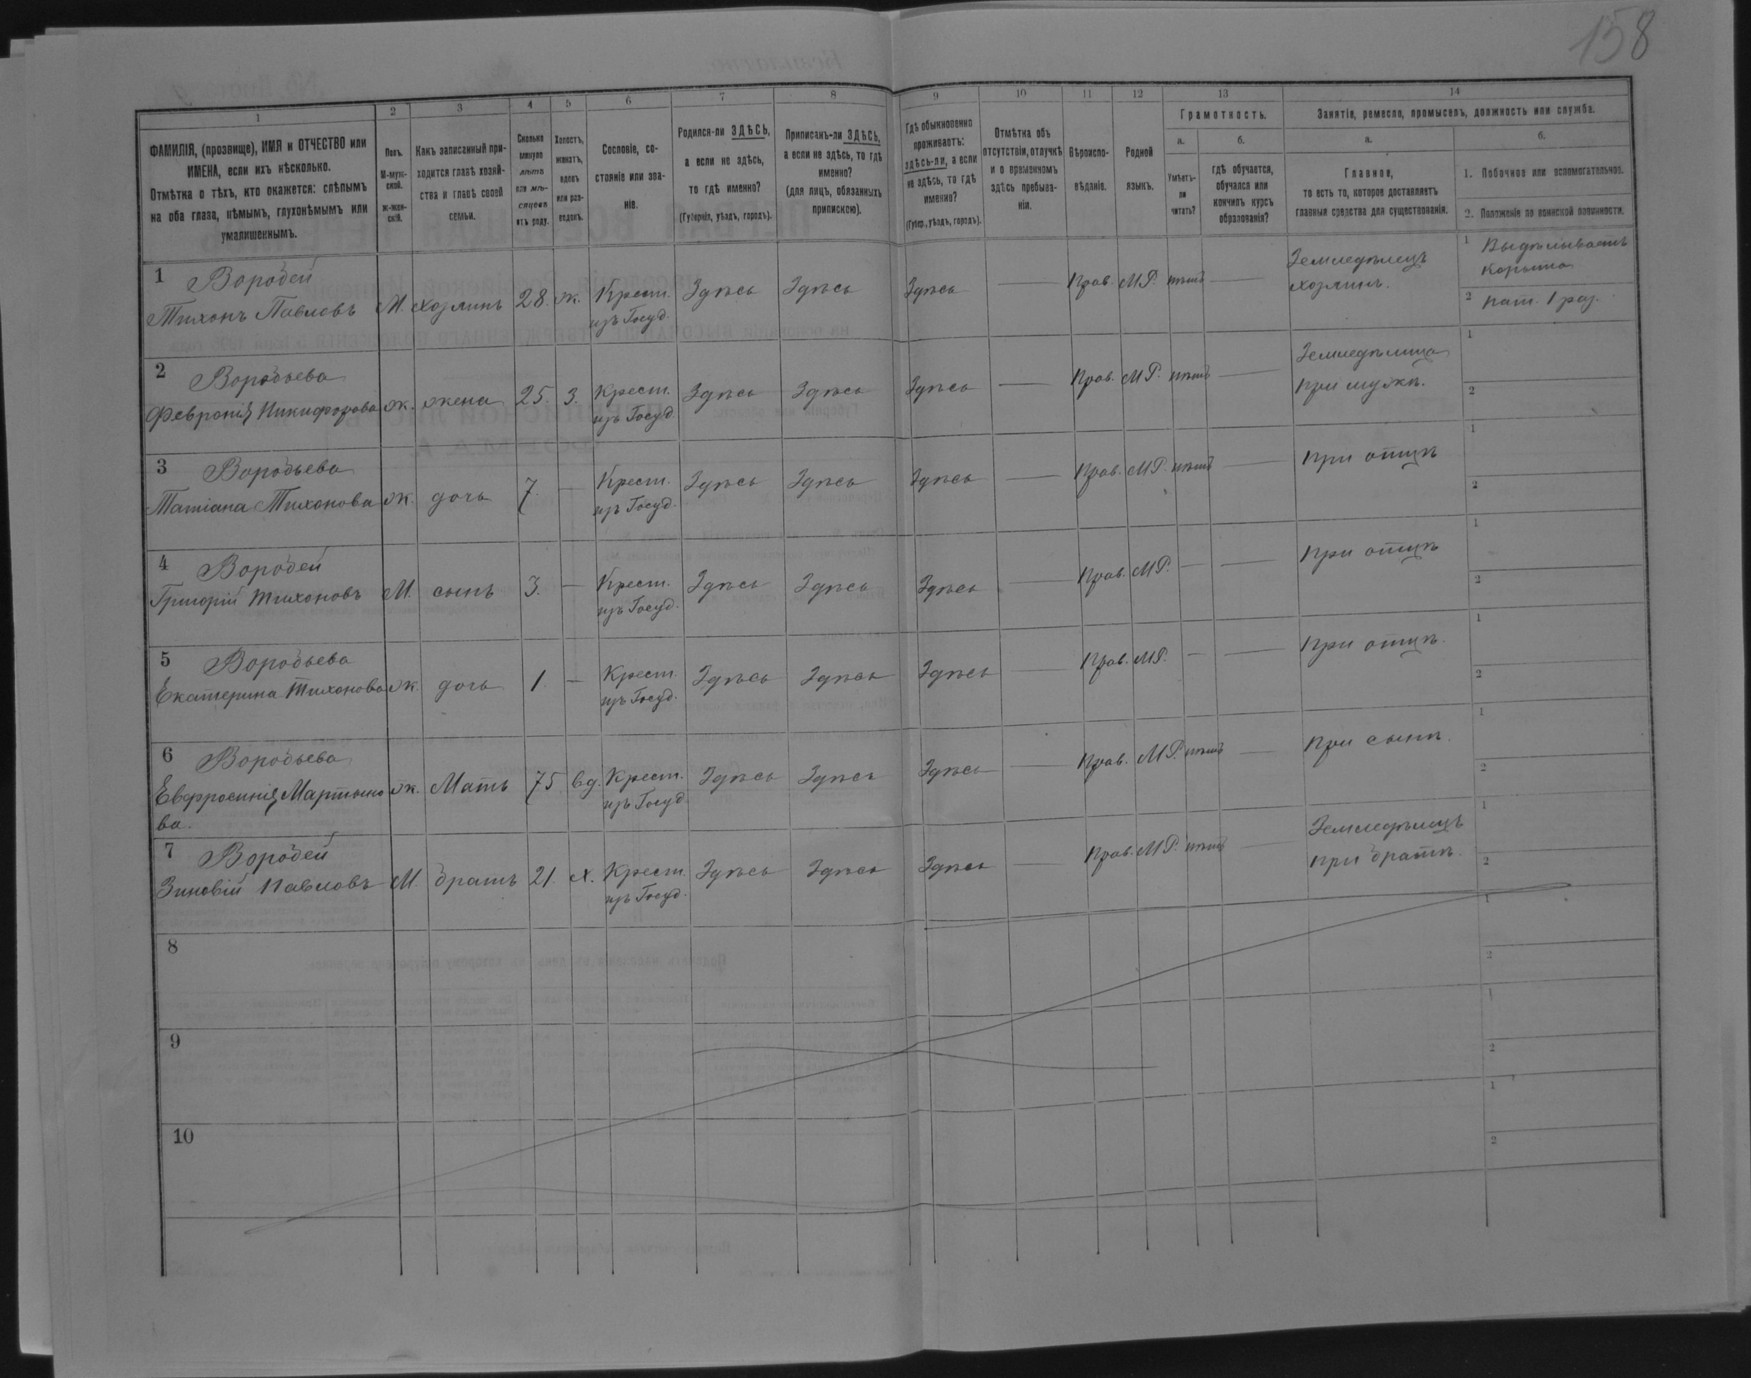 158
1
2
3
4
5
6
7
8
9
10
11
12
13
14
ФАМИЛІЯ, (прозвище), ИМЯ и ОТЧЕСТВО или
ИМЕНА, если ихъ нѣсколько.
Отмѣтка о тѣхъ, кто окажется: слѣпымъ
на оба глаза, нѣмымъ, глухонѣмымъ или
умалишеннымъ.
Полъ.
М-муж-
ской.
Ж-жен-
скій.
Какъ записанный при-
ходится главѣ хозяй-
ства и главѣ своей
семьи.
Сколько
минуло
лѣтъ
или мѣ-
сяцевъ
отъ роду.
Холостъ,
женатъ,
вдовъ
или раз-
веденъ.
Сословіе, со-
стояніе или зва-
ніе.
Родился-ли ЗДѢСЬ,
а если не здѣсь,
то гдѣ именно?
(Губернія, уѣздъ, городъ).
Приписанъ-ли ЗДѢСЬ,
а если не здѣсь, то гдѣ
именно?
(для лицъ, обязанныхъ
припискою).
Гдѣ обыкновенно
проживаетъ:
здѣсь-ли, а если
не здѣсь, то гдѣ
именно?
(Губер., уѣздъ, городъ).
Отмѣтка объ
отсутствіи, отлучкѣ
и о временномъ
здѣсь пребыва-
ніи.
Вѣроиспо-
вѣданіе.
Родной
языкъ.
Грамотность.
а.
б.
Умѣетъ-
ли
читать?
гдѣ обучается,
обучался или
кончилъ курсъ
образованія?
Занятіе, ремесло, промыселъ, должность или служба.
а.
б.
Главное,
то есть то, которое доставляетъ
главныя средства для существованія.
1. Побочное или вспомогательное.
2. Положеніе по воинской повинности.
1 Воробей
Тихонъ Павловъ М. хозяинъ 28. ж. Крест. изъ Госуд. Здѣсь Здѣсь Здѣсь — Прав. М.Р. нѣтъ — Земледѣлецъ хозяинъ. 1 Выдѣлываетъ
2 рат. 1 раз.
2 Воробьева
Февронія Никифорова ж. жена 25. З. Крест. изъ Госуд. Здѣсь Здѣсь Здѣсь — Прав. М.Р. нѣтъ — Земледѣлица при мужѣ. 1
2
3 Воробьева
Татіана Тихонова ж. дочь 7. — Крест. изъ Госуд. Здѣсь Здѣсь Здѣсь — Прав. М.Р. нѣтъ — при отцѣ 1
2
4 Воробей
Григорій Тихоновъ М. сынъ 3. — Крест. изъ Госуд. Здѣсь Здѣсь Здѣсь — Прав. М.Р. — — при отцѣ 1
2
5 Воробьева
Екатерина Тихонова ж. дочь 1 — Крест. изъ Госуд. Здѣсь Здѣсь Здѣсь — Прав. М.Р. — — при отцѣ. 1
2
6 Воробьева
Евфросинія Мартыно ж. Мать 75 вд. Крест. изъ Госуд. Здѣсь Здѣсь Здѣсь — Прав. М.Р. нѣтъ — при сынѣ. 1
ва. 2
7 Воробей
Зиновій Павловъ М. братъ 21. х. Крест. изъ Госуд. Здѣсь Здѣсь Здѣсь — Прав. М.Р. нѣтъ — Земледѣлецъ при братѣ. 1
2
8 1
2
9 1
2
10 1
2